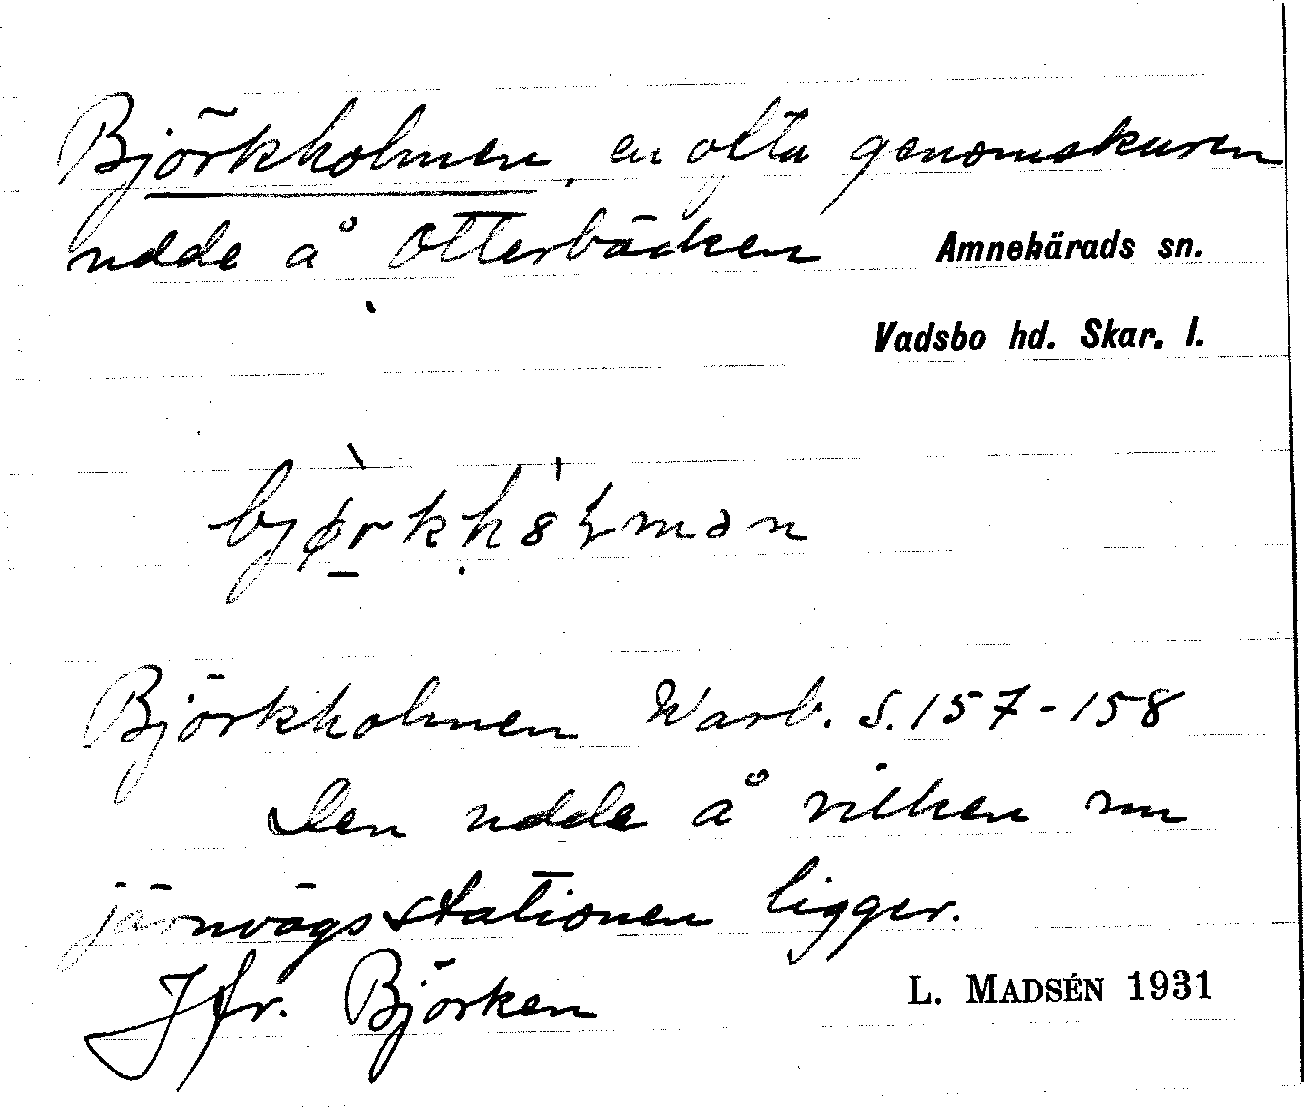 Björkholmen, en ofta genomskuren
udde å Otterbäcken
Amnehärads sn.
Vadsbo hd. Skar. l.
Björkholmen Warb. S. 157-158
Den udde å vilken nu
järnvägsstationen ligger.
Jfr. Björken
L. MADSÉN 1931